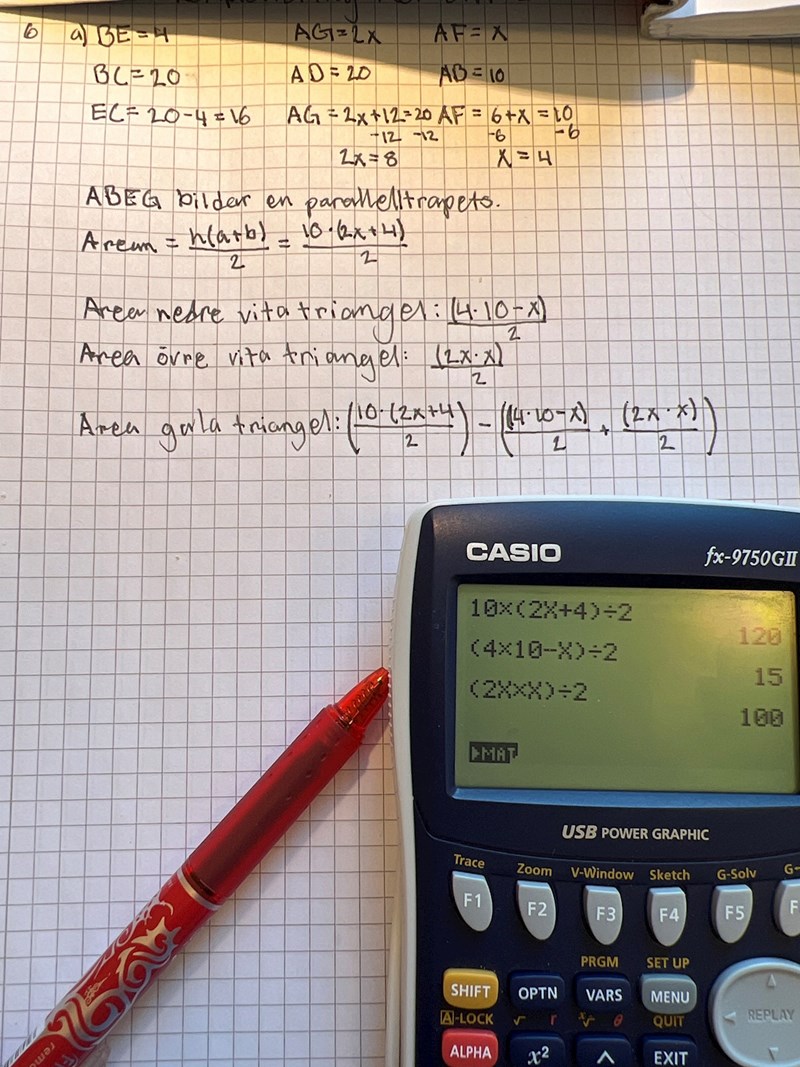 6 a) BE = 4 AG = 2x AF = x
BC = 20 AD = 20 AB = 10
EC = 20 - 4 = 16 AG = 2x + 12 = 20 AF = 6 + x = 10
-12 -12 -6 -6
2x = 8 x = 4
ABEG bildar en parallelltrapets.
Arean = h(a+b)/2 = 10·(2x+4)/2
Area nedre vita triangel: (4·10-x)/2
Area övre vita triangel: (2x·x)/2
Area gula triangel: (10·(2x+4/2) - ((4·10-x)/2 + (2x·x)/2)
CASIO fx-9750GII
10×(2X+4)÷2
120
(4×10-X)÷2
15
(2X×X)÷2
100
▶MAT
USB POWER GRAPHIC
Trace Zoom V-Window Sketch G-Solv G-
F1 F2 F3 F4 F5 F
PRGM SET UP
SHIFT OPTN VARS MENU
REPLAY
A-LOCK √ r ˣ√ θ QUIT
ALPHA x² ^ EXIT